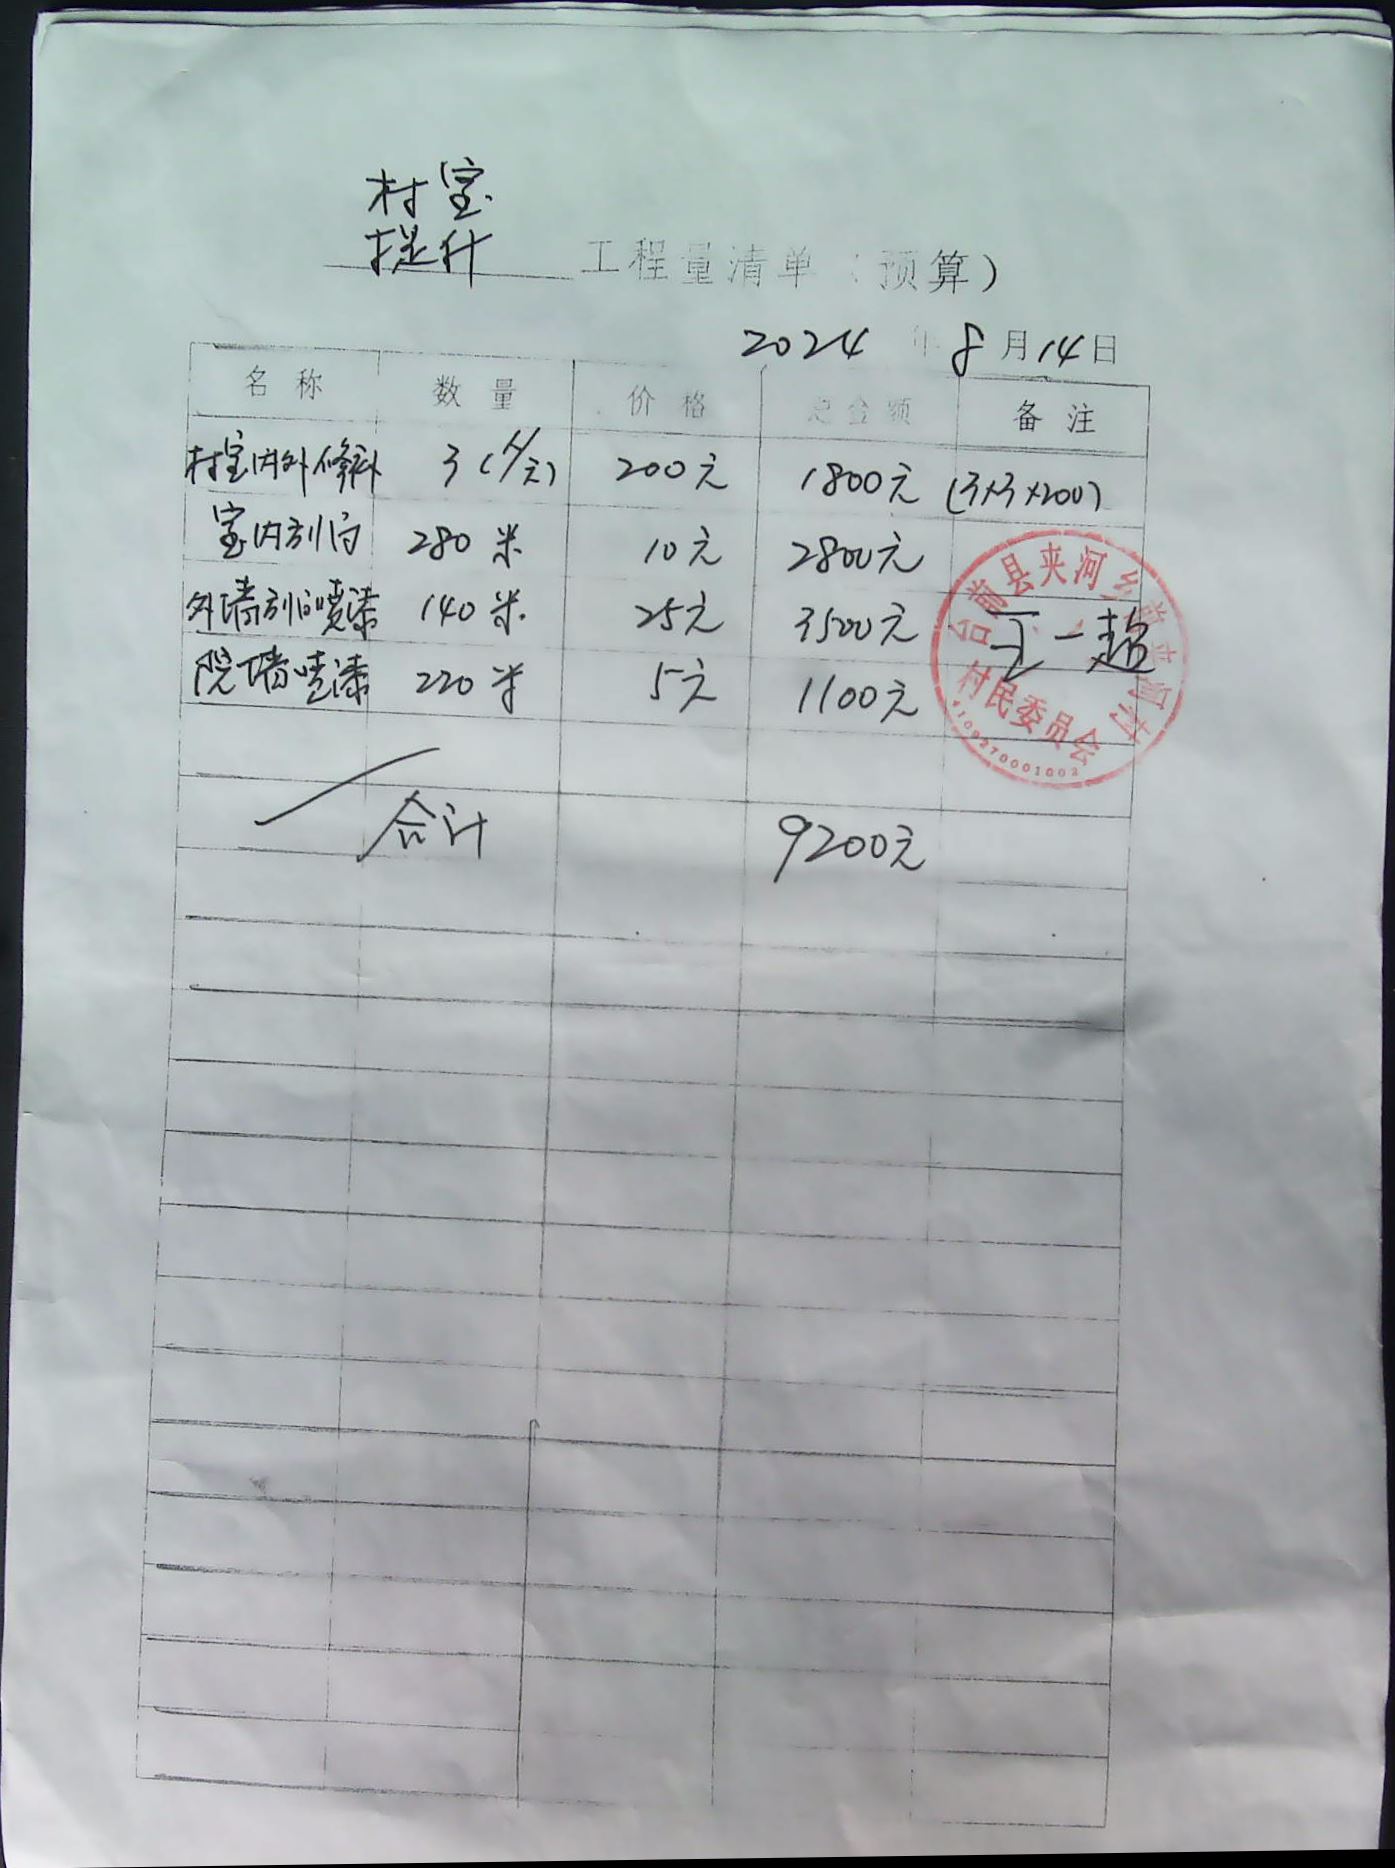 村室
提升 工程量清单（预算）
2024年8月14日
名称 数量 价格 总金额 备注
村室内外修补 3(人/天) 200元 1800元 (3×3×200)
室内刮白 280米 10元 2800元
外墙刮白喷漆 140米 25元 3500元 王一超
院墙喷漆 220米 5元 1100元
合计 9200元
台前县夹河乡
村民委员会
4109270001002